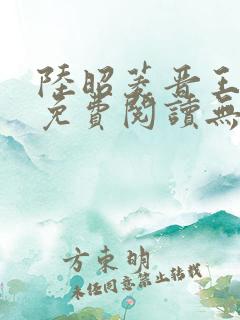 陸昭菱晋王
免費閱讀無
方束明
未經同意禁止轉載